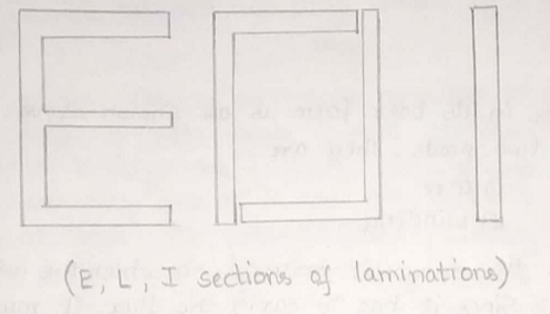 (E, L, I sections of laminations)